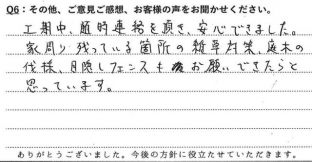 Q6：その他、ご意見ご感想、お客様の声をお聞かせください。
工期中、随時連絡を頂き、安心できました。
家周り残っている箇所の雑草対策、庭木の
伐採、目隠しフェンスも お願いできたらと
思っています。
ありがとうございました。今後の方針に役立たせていただきます。